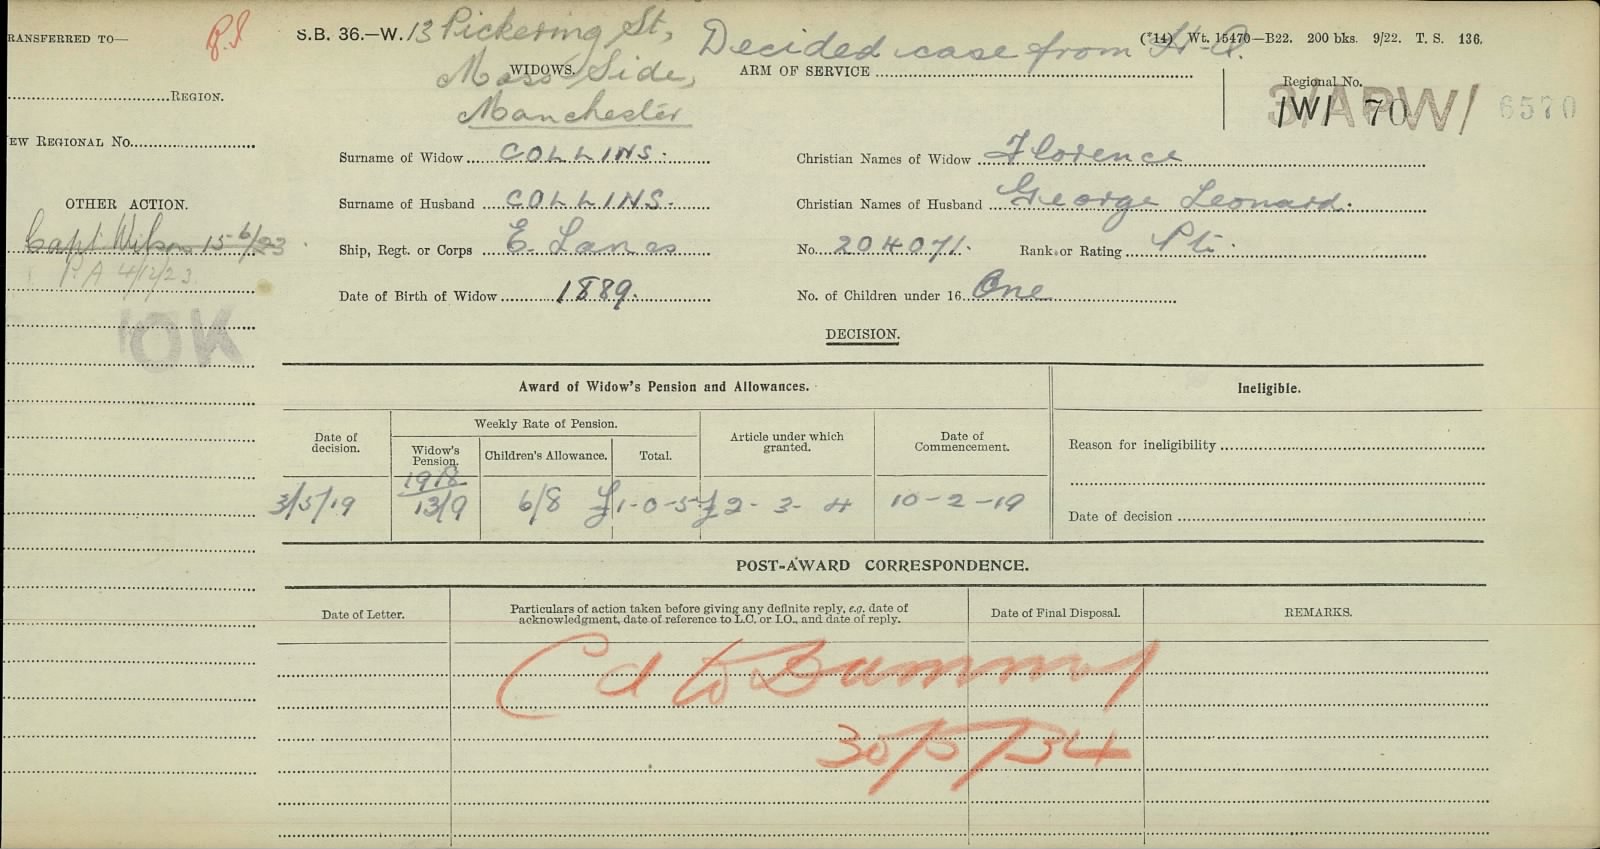 S.B. 36.—W. 13 Pickering St, Decided case from H.Q. (*14) Wt. 15470—B22. 200 bks. 9/22. T. S. 136.
RANSFERRED TO—
Moss Side,
WIDOWS. ARM OF SERVICE
Manchester
Regional No.
REGION.
3/APW/ /W/ 70 6570
EW REGIONAL No.
Surname of Widow COLLINS. Christian Names of Widow Florence
OTHER ACTION. Surname of Husband COLLINS. Christian Names of Husband George Leonard.
Capt Wilson 15-6/23 Ship, Regt. or Corps E. Lancs No. 204071. Rank or Rating Pte.
P.A 4/12/23
Date of Birth of Widow 1889. No. of Children under 16 One
OK
DECISION.
Award of Widow's Pension and Allowances. Ineligible.
Date of decision. Weekly Rate of Pension. Article under which granted. Date of Commencement.
Widow's Pension. Children's Allowance. Total.
Reason for ineligibility
1918
3/5/19 13/9 6/8 £1-0-5 £2-3-4 10-2-19
Date of decision
POST-AWARD CORRESPONDENCE.
Date of Letter. Particulars of action taken before giving any definite reply, e.g. date of Date of Final Disposal. REMARKS.
acknowledgment, date of reference to L.C. or I.O., and date of reply.
Cd to Dummy
30/5/34